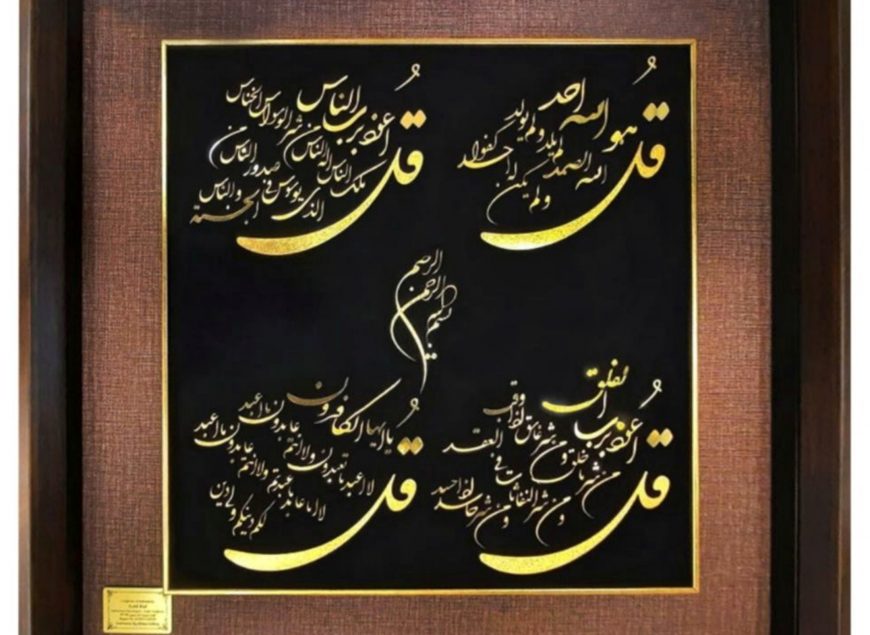 قل هو الله احد
الله الصمد لم يلد ولم يولد
ولم يكن له كفوا احد
قل اعوذ برب الناس
ملك الناس اله الناس من شر الوسواس الخناس
الذى يوسوس فى صدور الناس من
الجنة والناس
بسم الله الرحمن الرحيم
قل اعوذ برب الفلق
من شر ما خلق ومن شر غاسق اذا وقب
ومن شر النفاثات فى العقد
ومن شر حاسد اذا حسد
قل يا ايها الكافرون
لا اعبد ما تعبدون ولا انتم عابدون ما اعبد
ولا انا عابد ما عبدتم ولا انتم عابدون ما اعبد
لكم دينكم ولى دين